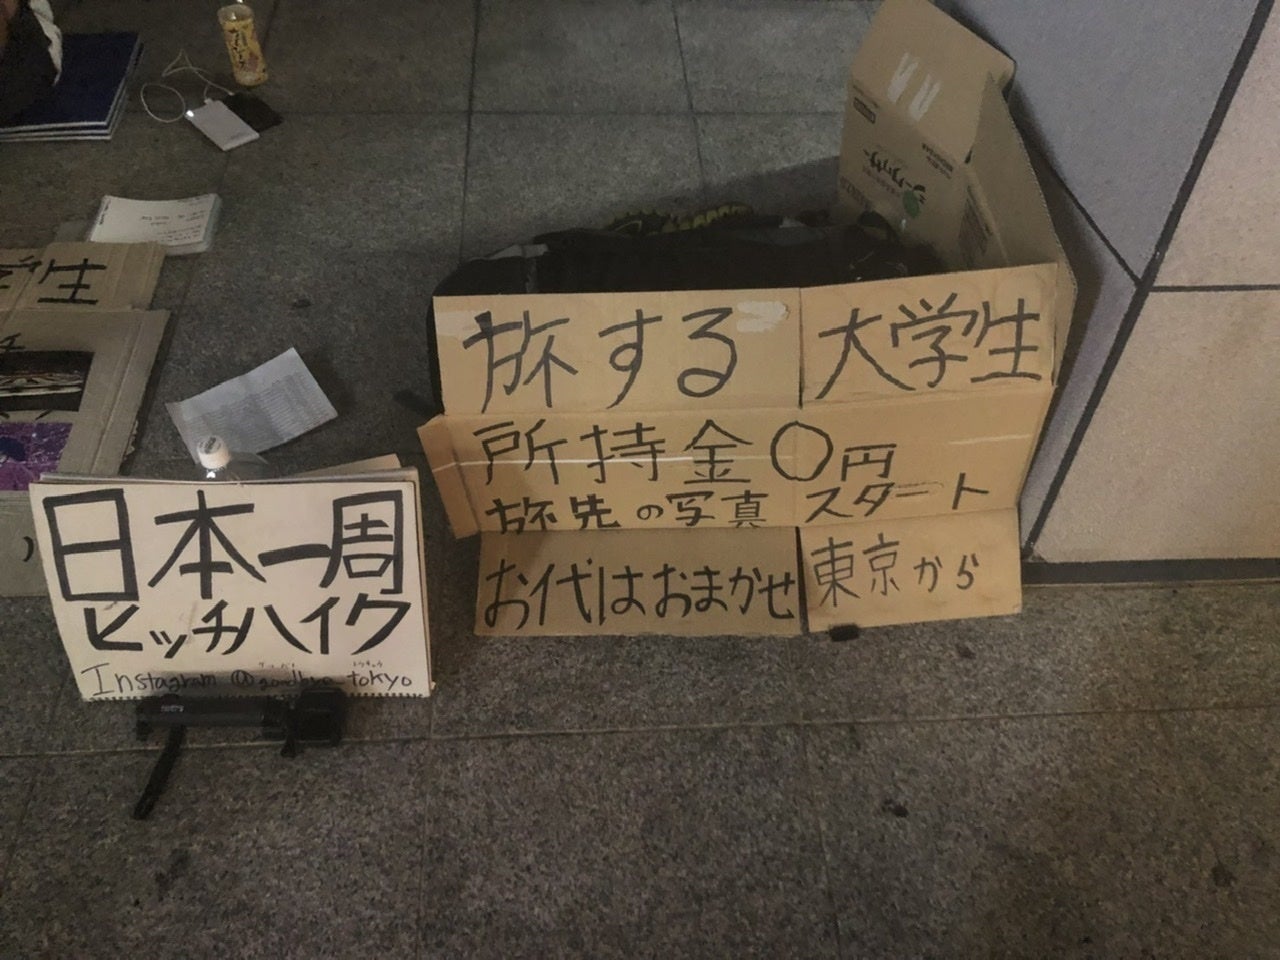 学生
日本一周
ヒッチハイク
Instagram @goodbye_tokyo
旅する 大学生
所持金〇円
スタート
旅先の写真
お代はおまかせ
東京から